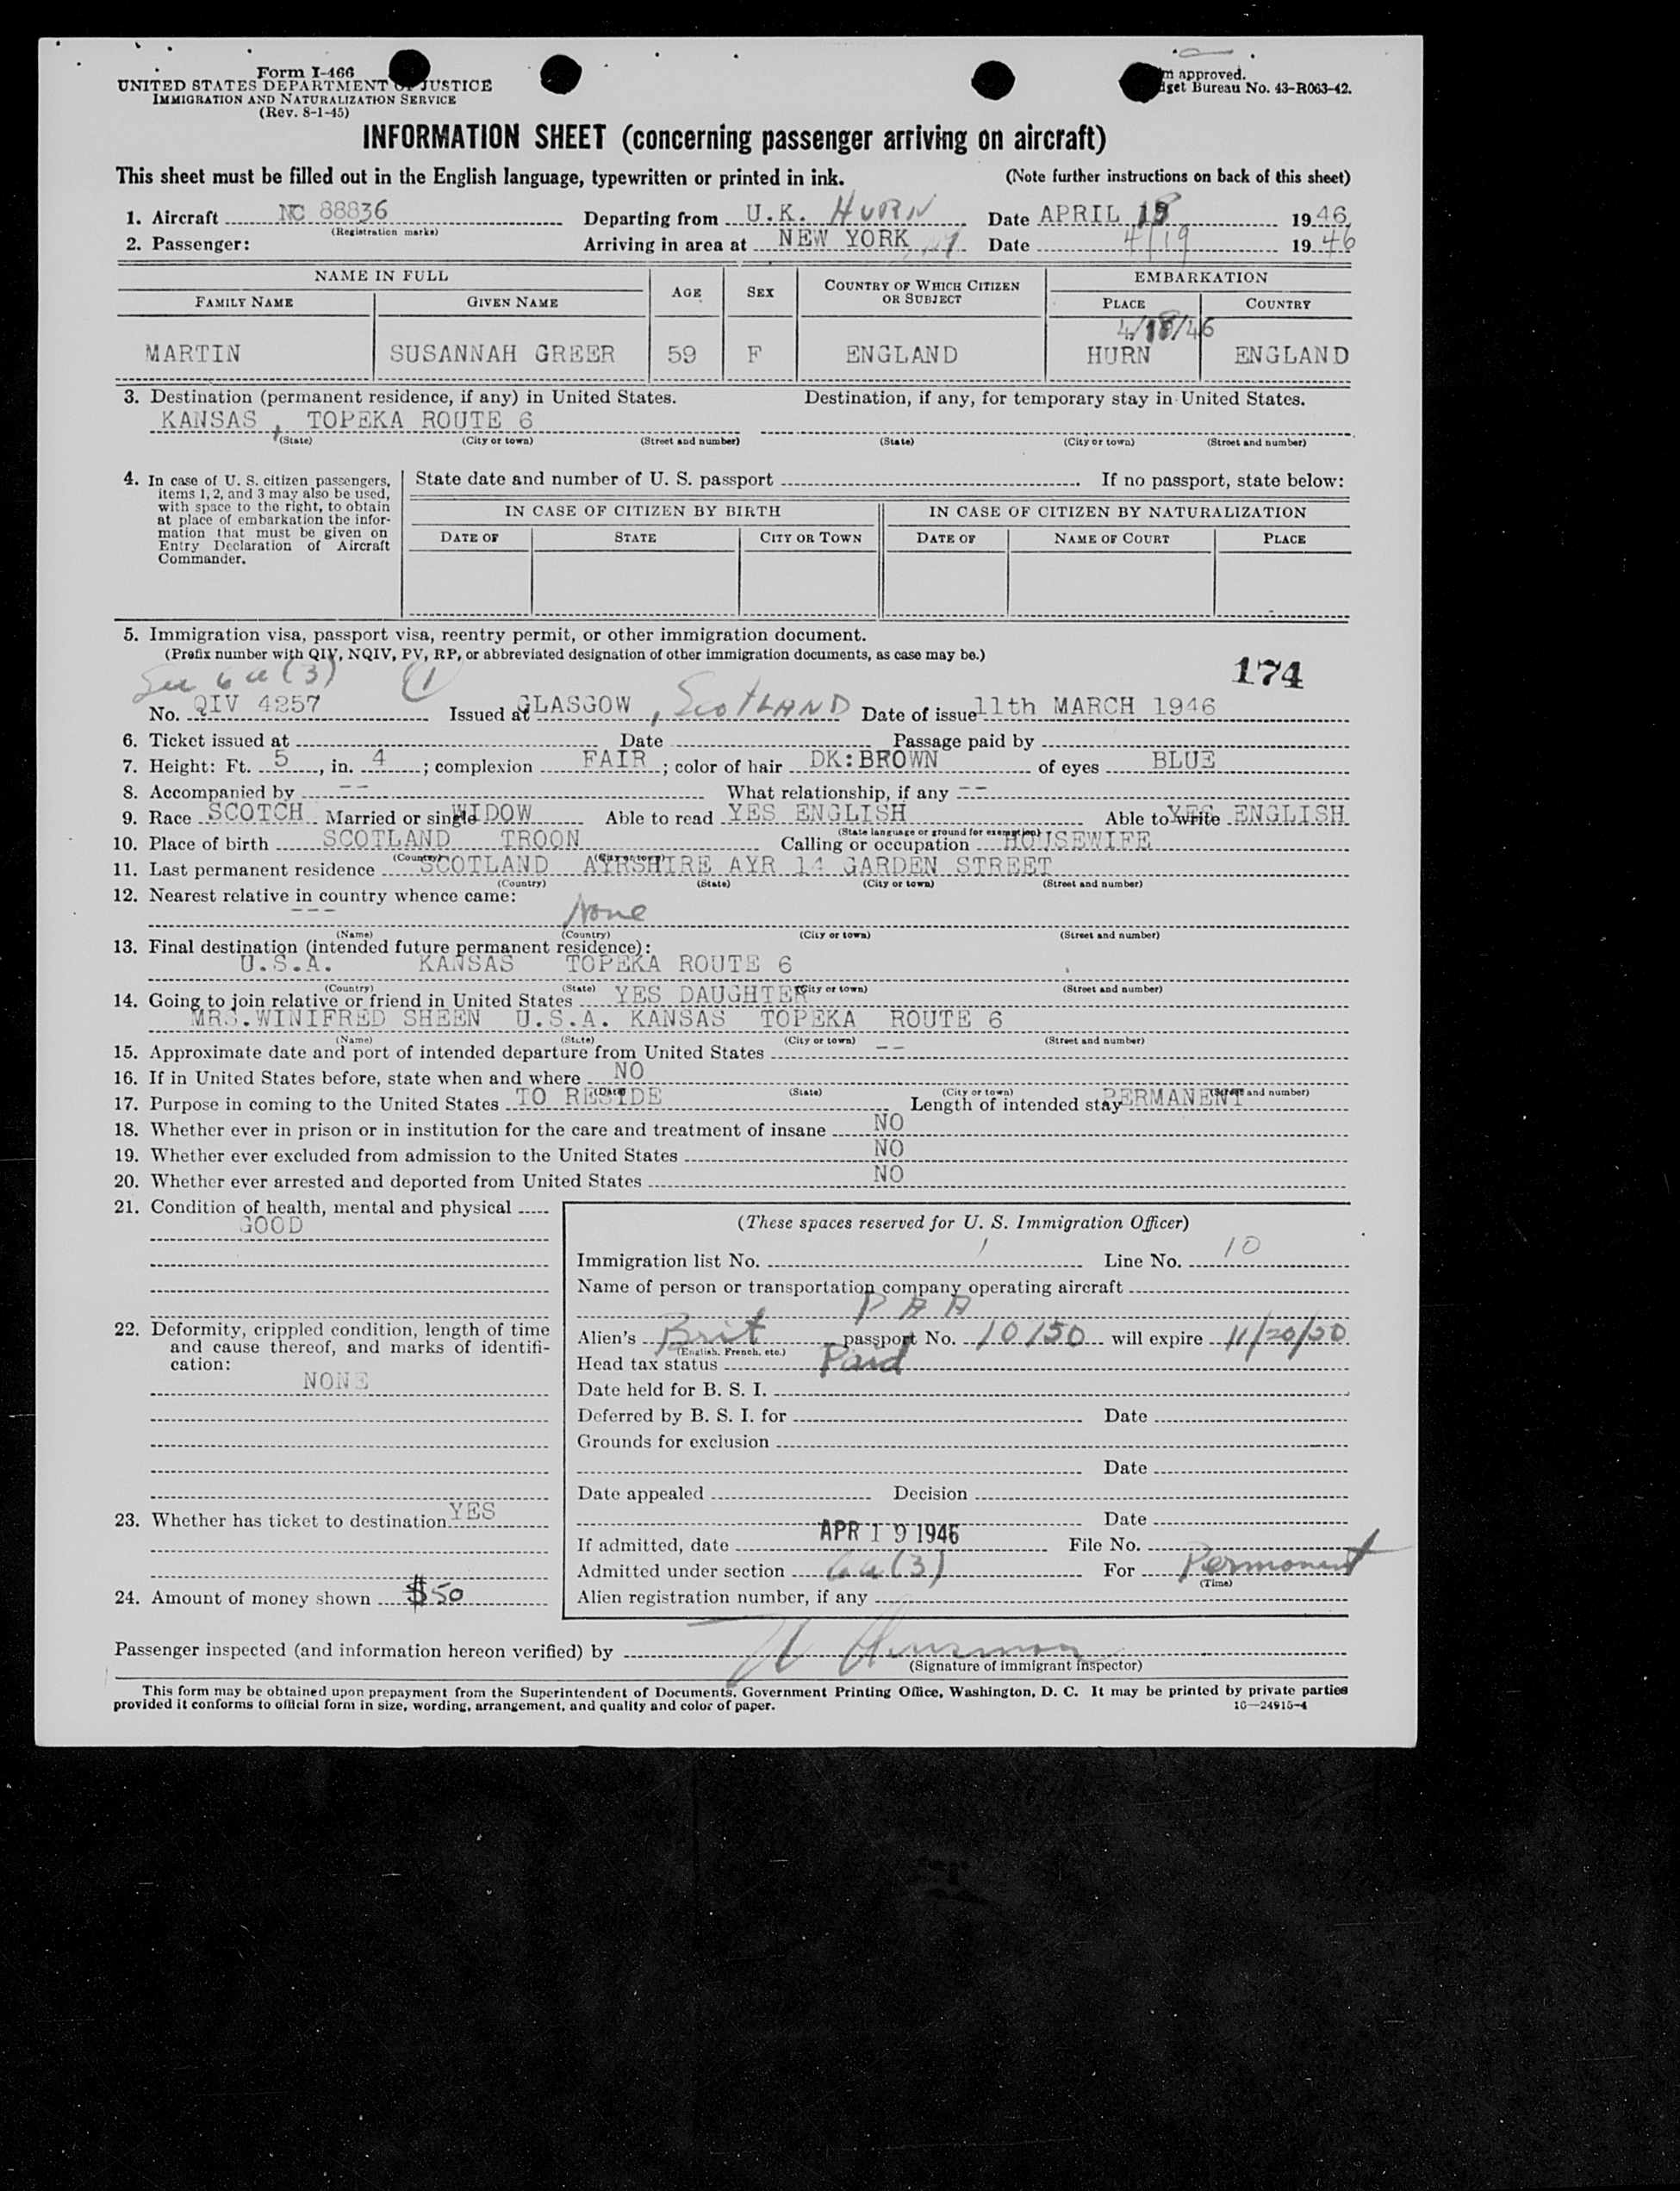 Form I-466
UNITED STATES DEPARTMENT OF JUSTICE
IMMIGRATION AND NATURALIZATION SERVICE
(Rev. 8-1-45)
m approved.
dget Bureau No. 43-R063-42.
INFORMATION SHEET (concerning passenger arriving on aircraft)
This sheet must be filled out in the English language, typewritten or printed in ink. (Note further instructions on back of this sheet)
1. Aircraft NC 88836 Departing from U.K. HURN Date APRIL 18 1946
(Registration marks)
2. Passenger: Arriving in area at NEW YORK Date 4/19 1946
NAME IN FULL AGE SEX COUNTRY OF WHICH CITIZEN OR SUBJECT EMBARKATION
FAMILY NAME GIVEN NAME PLACE COUNTRY
4/18/46
MARTIN SUSANNAH GREER 59 F ENGLAND HURN ENGLAND
3. Destination (permanent residence, if any) in United States. Destination, if any, for temporary stay in United States.
KANSAS, TOPEKA ROUTE 6
(State) (City or town) (Street and number) (State) (City or town) (Street and number)
4. In case of U. S. citizen passengers, items 1, 2, and 3 may also be used, with space to the right, to obtain at place of embarkation the information that must be given on Entry Declaration of Aircraft Commander.
State date and number of U. S. passport If no passport, state below:
IN CASE OF CITIZEN BY BIRTH IN CASE OF CITIZEN BY NATURALIZATION
DATE OF STATE CITY OR TOWN DATE OF NAME OF COURT PLACE
5. Immigration visa, passport visa, reentry permit, or other immigration document.
(Prefix number with QIV, NQIV, PV, RP, or abbreviated designation of other immigration documents, as case may be.)
174
Sec 6a(3) (1)
No. QIV 4257 Issued at GLASGOW, SCOTLAND Date of issue 11th MARCH 1946
6. Ticket issued at Date Passage paid by
7. Height: Ft. 5, in. 4; complexion FAIR; color of hair DK:BROWN of eyes BLUE
8. Accompanied by -- What relationship, if any --
9. Race SCOTCH Married or single WIDOW Able to read YES ENGLISH Able to write YES ENGLISH
(State language or ground for exemption)
10. Place of birth SCOTLAND TROON Calling or occupation HOUSEWIFE
(Country) (City or town)
11. Last permanent residence SCOTLAND AYRSHIRE AYR 14 GARDEN STREET
(Country) (State) (City or town) (Street and number)
12. Nearest relative in country whence came:
--- None
(Name) (Country) (City or town) (Street and number)
13. Final destination (intended future permanent residence):
U.S.A. KANSAS TOPEKA ROUTE 6
(Country) (State) (City or town) (Street and number)
14. Going to join relative or friend in United States YES DAUGHTER
MRS.WINIFRED SHEEN U.S.A. KANSAS TOPEKA ROUTE 6
(Name) (State) (City or town) (Street and number)
15. Approximate date and port of intended departure from United States --
16. If in United States before, state when and where NO
(Date) (State) (City or town) (Street and number)
17. Purpose in coming to the United States TO RESIDE Length of intended stay PERMANENT
18. Whether ever in prison or in institution for the care and treatment of insane NO
19. Whether ever excluded from admission to the United States NO
20. Whether ever arrested and deported from United States NO
21. Condition of health, mental and physical
GOOD
22. Deformity, crippled condition, length of time and cause thereof, and marks of identification:
NONE
23. Whether has ticket to destination YES
24. Amount of money shown $50
(These spaces reserved for U. S. Immigration Officer)
Immigration list No. 1 Line No. 10
Name of person or transportation company operating aircraft
PAA
Alien's Brit passport No. 10150 will expire 11/20/50
(English, French, etc.)
Head tax status Paid
Date held for B. S. I.
Deferred by B. S. I. for Date
Grounds for exclusion
Date
Date appealed Decision
Date
If admitted, date APR 19 1946 File No.
Admitted under section 6a(3) For Permanent
(Time)
Alien registration number, if any
Passenger inspected (and information hereon verified) by
(Signature of immigrant inspector)
This form may be obtained upon prepayment from the Superintendent of Documents, Government Printing Office, Washington, D. C. It may be printed by private parties
provided it conforms to official form in size, wording, arrangement, and quality and color of paper. 16—24915-4